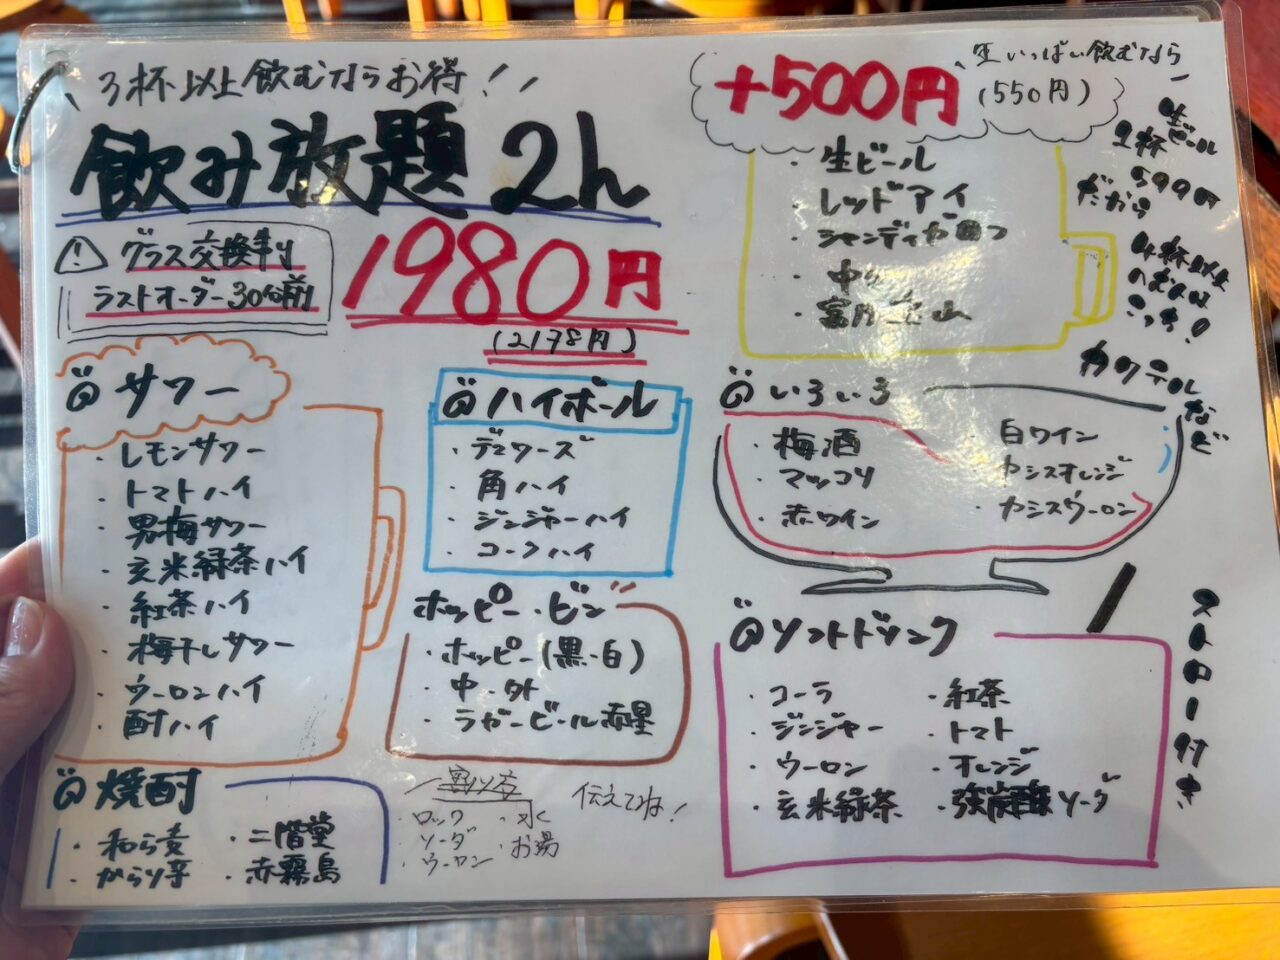 3杯以上飲むならお得!!
飲み放題 2h
⚠ グラス交換制
ラストオーダー30分前
1980円
(2178円)
サワー
・レモンサワー
・トマトハイ
・男梅サワー
・玄米緑茶ハイ
・紅茶ハイ
・梅干しサワー
・ウーロンハイ
・酎ハイ
ハイボール
・デュワーズ
・角ハイ
・ジンジャーハイ
・コークハイ
ホッピー・ビン
・ホッピー(黒・白)
・中・外
・ラガービール赤星
焼酎
・和ら麦
・からり芋
・二階堂
・赤霧島
割り方
・ロック
・ソーダ
・ウーロン
・水
・お湯
伝えてね!
生いっぱい飲むなら
+500円
(550円)
・生ビール
・レッドアイ
・シャンディガフ
・富乃宝山
生ビール
1杯
599円
だから
4杯以上
のむ人は
こっち!
いろいろ
カクテルなど
・梅酒
・マッコリ
・赤ワイン
・白ワイン
・カシスオレンジ
・カシスウーロン
ソフトドリンク
ストロー付き
・コーラ
・ジンジャー
・ウーロン
・玄米緑茶
・紅茶
・トマト
・オレンジ
・強炭酸ソーダ